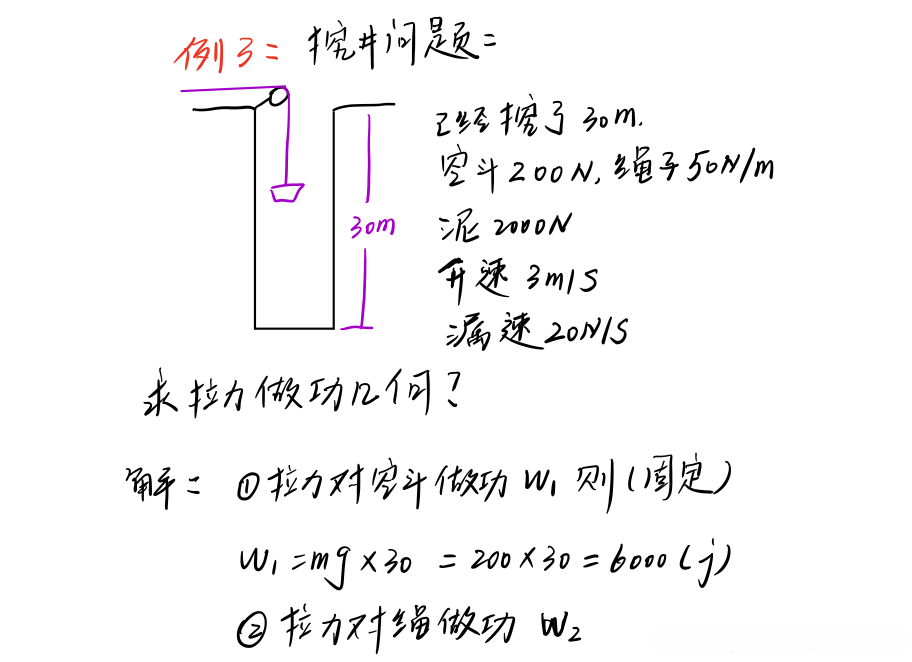 例3: 挖井问题:
已经挖了30m.
空斗200N,绳子50N/m
30m
泥2000N
升速 3m/s
漏速20N/s
求拉力做功几何?
解: ①拉力对空斗做功 W₁ 则(固定)
W₁=mg×30 =200×30=6000(j)
②拉力对绳做功 W₂